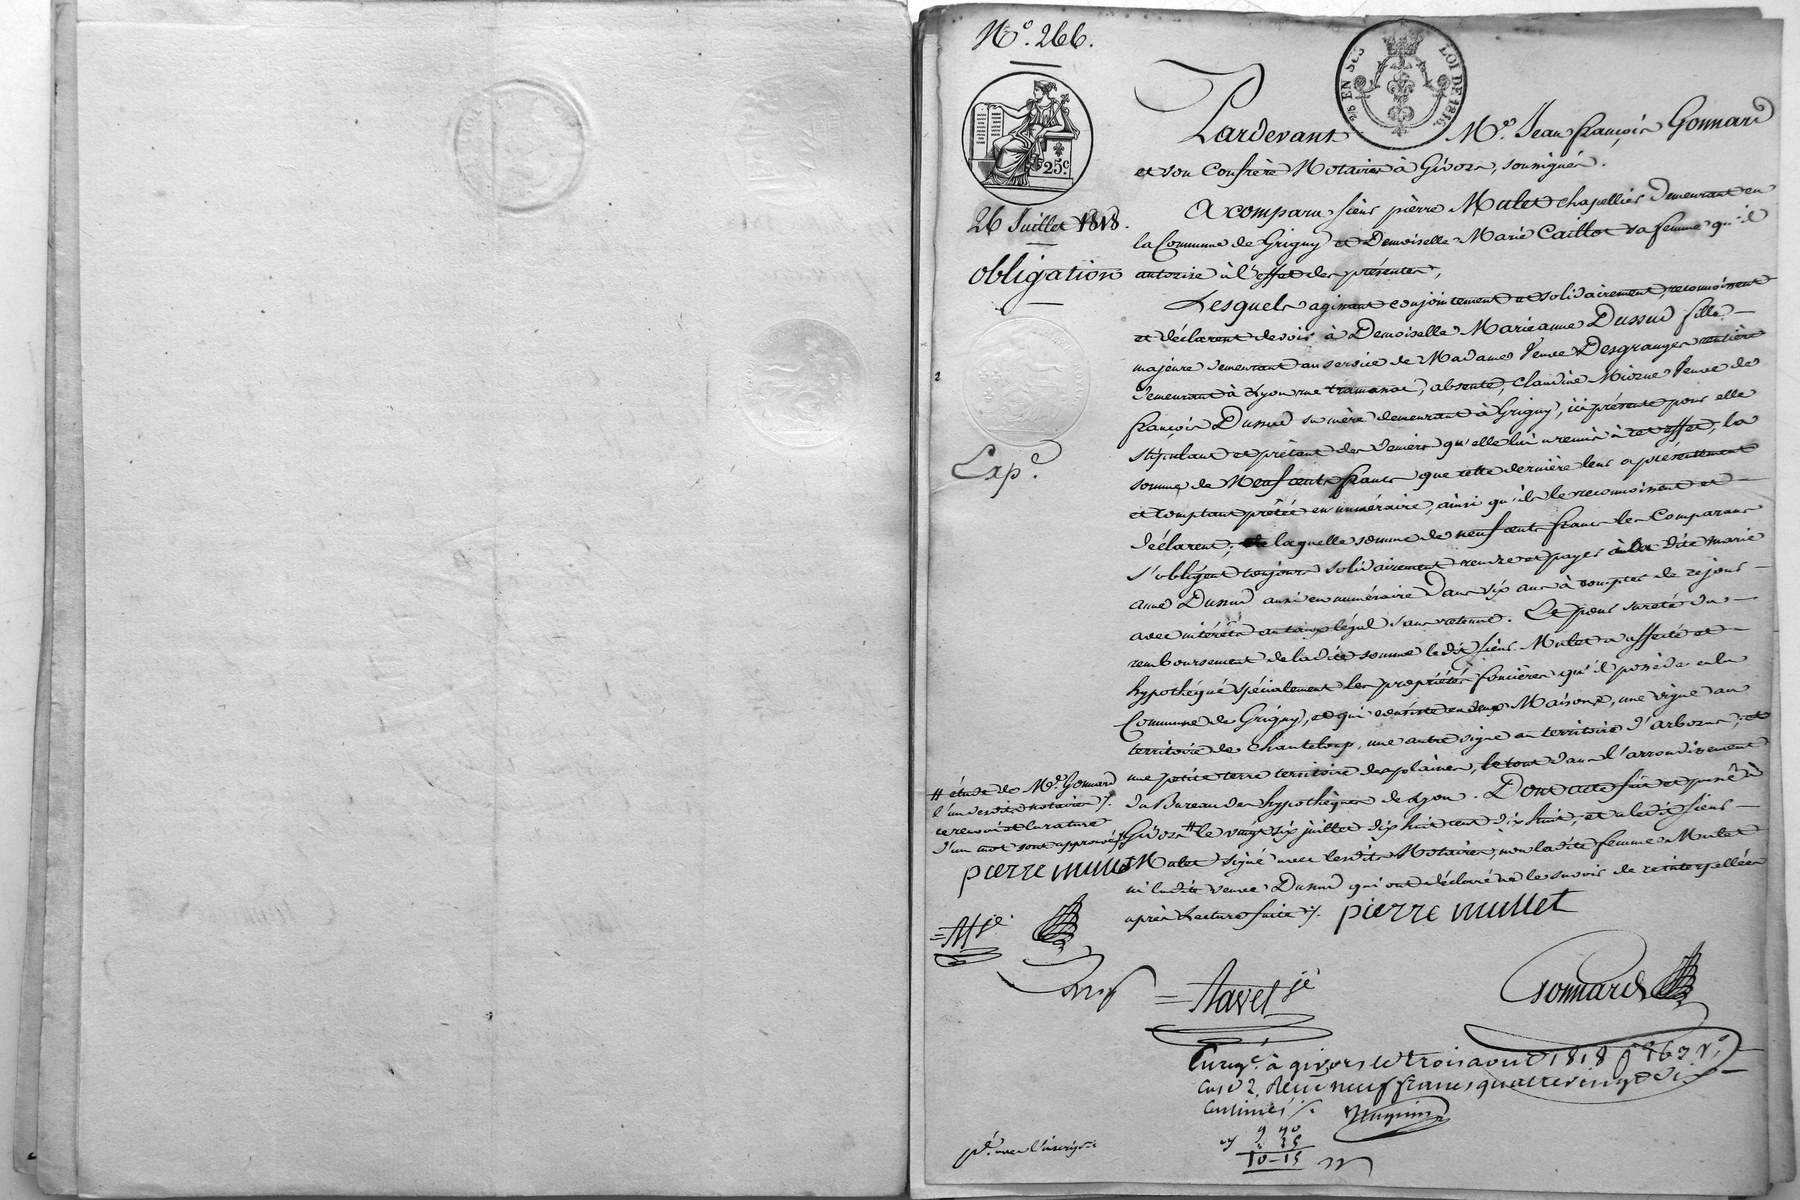 N.º 266.
25.c
LOI DE 1816.
26 Juillet 1818.
obligation
Exp.on
Pardevant M.e Jean françois Gonnard
et son Confrère Notaires à Givors, soussignés.
A comparu sieur pierre Mulet chapellier demeurant en
la Commune de Grigny et Demoiselle Marie Caillot sa femme qu'il
autorise à l'effet des présentes,
Lesquels agissant conjointement et solidairement, reconnoissent
et déclarent devoir à Demoiselle Marieanne Dussud fille
majeure demeurant au service de Madame veuve Desgranges rentière
demeurant à Lyon rue tramassac, absente, Claudine Miozne veuve de
françois Dussud sa mère demeurant à Grigny, ici présente pour elle
stipulant et prêtant des deniers qu'elle lui a remis à cet effet, la
somme de Neuf cents francs que cette dernière leur a présentement
et comptant prêtée en numéraire, ainsi qu'ils le reconnoissent et
déclarent; laquelle somme de neuf cents francs les Comparans
s'obligent toujours solidairement rendre et payer à la dite marie
anne Dussud aussi en numéraire Dans six ans à compter de ce jour
avec intérêts au taux légal sans retenue. Et pour sureté du
remboursement de ladite somme ledit sieur Mulet a affecté et
hypothéqué spécialement les propriétés foncières qu'il possède en la
Commune de Grigny, et qui consiste en deux Maisons, une vigne au
territoire de Chanteloup, une autre vigne au territoire d'arboras, et
une petite terre territoire des plaines, le tout dans l'arrondissement
du Bureau des hypothèques de Lyon. Dont acte fait et passé à
Givors # le vingt six juillet dix huit cent dix huit, et a ledit sieur
Mulet signé avec lesdits Notaires, non ladite femme Mulet
ni ladite veuve Dussud qui ont déclaré ne le savoir de ce interpellées
après Lecture faite ./.
# étude de M.e Gonnard
l'un desdits notaires ./.
ce renvoi et la rature
d'un mot sont approuvés
pierre mullet
pierre mullet
= Favel je
Gonnard
Enreg.é à givors le trois aout 1818 f.o 163 v.o
case 2, Reçu neuf francs quatre vingt dix
centimes ./.
9 90
10-15